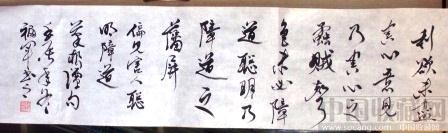 利欲未盡
害心意見
乃害心之
蟊賊声
色未必障
道聪明乃
障道之
藩屏
偏見害人聪
明障道
菜根谭句
中国收藏网
www.socang.com